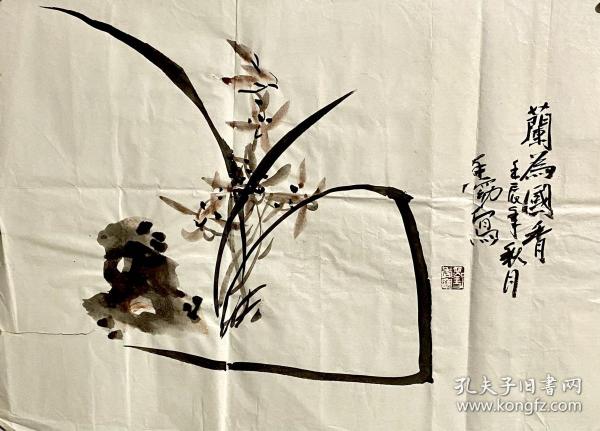 蘭為國香
壬辰年秋月
寫
孔夫子旧書网
www.kongfz.com